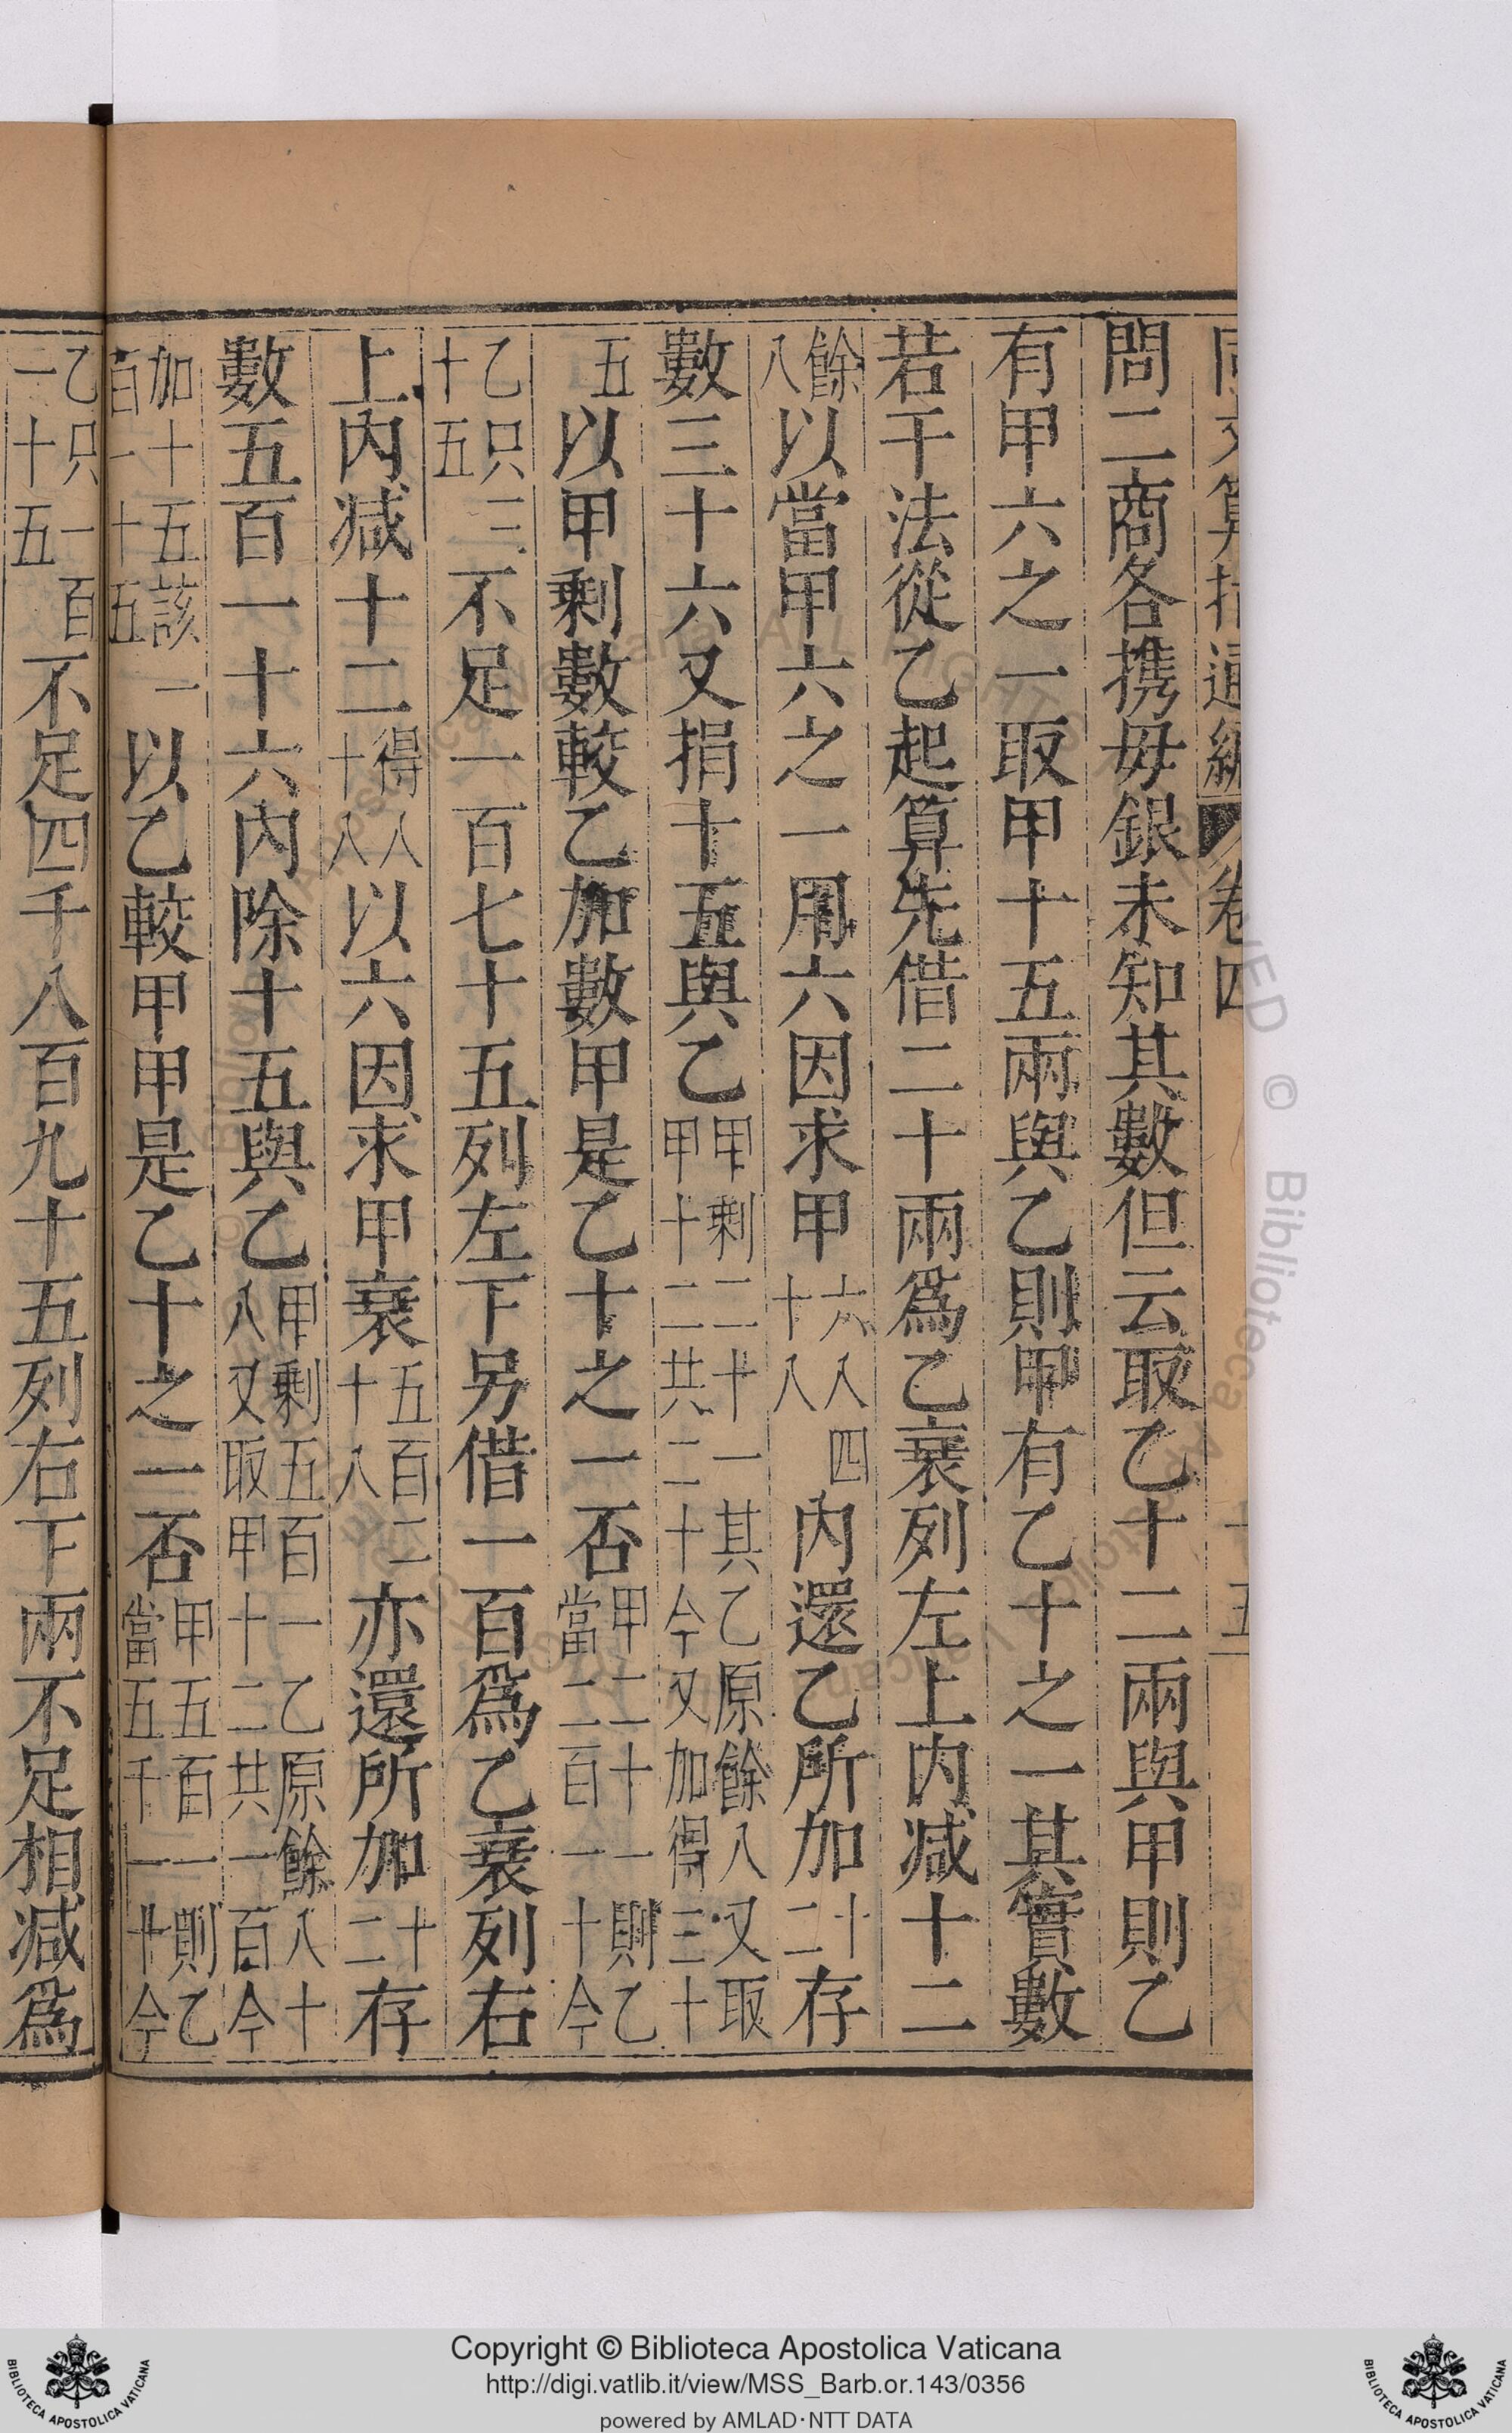 同文算指通編 卷四 十五
問二商各携毋銀未知其數但云取乙十二兩與甲則乙
有甲六之一取甲十五兩與乙則甲有乙十之一其實數
若干法從乙起算先借二十兩爲乙衰列左上內减十二
餘八以當甲六之一用六因求甲六八四十八內還乙所加十二存
數三十六又捐十五與乙甲剩二十一其乙原餘八又取甲十二共二十今又加得三十
五以甲剩數較乙加數甲是乙十之一否甲二十一則乙當二百一十今
乙只三十五不足一百七十五列左下另借一百爲乙衰列右
上內减十二得八十八以六因求甲衰五百二十八亦還所加十二存
數五百一十六內除十五與乙甲剩五百一乙原餘八十八又取甲十二共一百今
加十五該一百一十五以乙較甲甲是乙十之一否甲五百一則乙當五千一十今
乙只一百一十五不足四千八百九十五列右下兩不足相减爲
Copyright © Biblioteca Apostolica Vaticana
http://digi.vatlib.it/view/MSS_Barb.or.143/0356
powered by AMLAD·NTT DATA
BIBLIOTECA APOSTOLICA VATICANA
BIBLIOTECA APOSTOLICA VATICANA